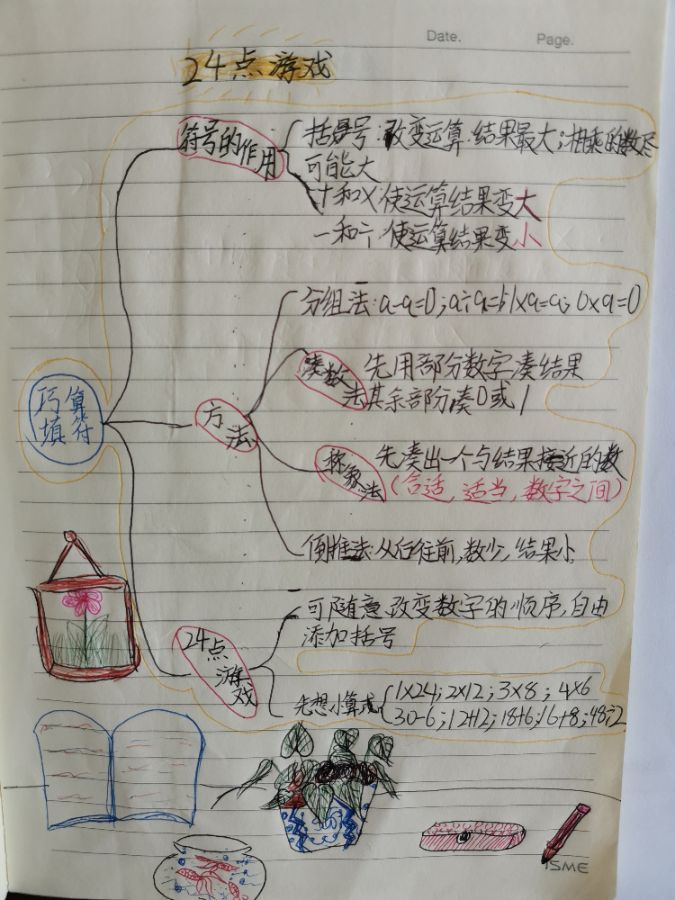 Date.
Page.
24点游戏
符号的作用
括号:改变运算.结果最大;相乘的数尽
可能大
十和X:使运算结果变大
一和÷:使运算结果变小
分组法:a-a=0;a÷a=1;1×a=a;0×a=0
凑数法
先用部分数字凑结果
其余部分凑0或1
巧填算符
方法
先凑出一个与结果接近的数
(合适,适当,数字之间)
倒推法:从后往前,数少,结果小
24点游戏
可随意改变数字的顺序,自由
添加括号
先想小算式
1×24;2×12;3×8;4×6
30-6;12+12;18+6;16+8;48÷2
ISME